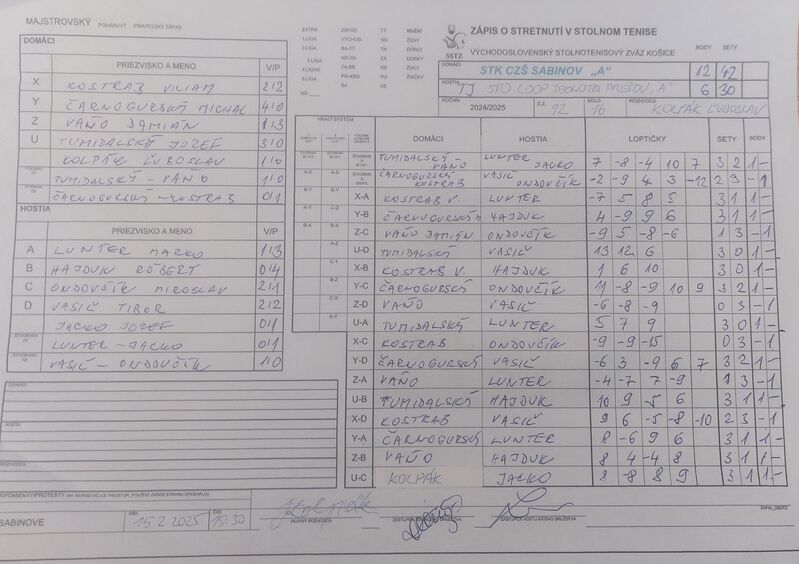 MAJSTROVSKÝ POHÁROVÝ PRIATEĽSKÝ ZÁPAS
ZÁPIS O STRETNUTÍ V STOLNOM TENISE
SSTZ VÝCHODOSLOVENSKÝ STOLNOTENISOVÝ ZVÄZ KOŠICE BODY SETY
DOMÁCI STK CZŠ SABINOV „A“ 12 42
HOSTIA TJ STO COOP JEDNOTA PREŠOV „A“ 6 30
ROČNÍK 2024/2025 Č.Z. 92 KOLO 16 ROZHODCA KOLPÁK ĽUBOSLAV
DOMÁCI
PRIEZVISKO A MENO V/P
X KOSTRAB VILIAM 2/2
Y ČARNOGURSKÝ MICHAL 4/0
Z VAŇO DAMIÁN 1/3
U TUMIDALSKÝ JOZEF 3/0
KOLPÁK ĽUBOSLAV 1/0
TUMIDALSKÝ - VAŇO 1/0
ČARNOGURSKÝ - KOSTRAB 0/1
HOSTIA
PRIEZVISKO A MENO V/P
A LUNTER MARKO 1/3
B HAJDUK RÓBERT 0/4
C ONDOVČÍK MIROSLAV 2/1
D VASIĽ TIBOR 2/2
JACKO JOZEF 0/1
LUNTER - JACKO 0/1
VASIĽ - ONDOVČÍK 1/0
HRACÍ SYSTÉM DOMÁCI HOSTIA LOPTIČKY SETY BODY
TUMIDALSKÝ VAŇO LUNTER JACKO 7 -8 -4 10 7 3 2 1 -
ČARNOGURSKÝ KOSTRAB VASIĽ ONDOVČÍK -2 -9 4 3 -12 2 3 - 1
X-A KOSTRAB V. LUNTER -7 5 8 5 3 1 1 -
Y-B ČARNOGURSKÝ M HAJDUK 4 -9 9 6 3 1 1 -
Z-C VAŇO DAMIÁN ONDOVČÍK -9 5 -8 -6 1 3 - 1
U-D TUMIDALSKÝ VASIĽ 13 12 6 3 0 1 -
X-B KOSTRAB V. HAJDUK 1 6 10 3 0 1 -
Y-C ČARNOGURSKÝ ONDOVČÍK 11 -8 -9 10 9 3 2 1 -
Z-D VAŇO VASIĽ -6 -8 -9 0 3 - 1
U-A TUMIDALSKÝ LUNTER 5 7 9 3 0 1 -
X-C KOSTRAB ONDOVČÍK -9 -9 -15 0 3 - 1
Y-D ČARNOGURSKÝ VASIĽ -6 3 -9 6 7 3 2 1 -
Z-A VAŇO LUNTER -4 -7 7 -9 1 3 - 1
U-B TUMIDALSKÝ HAJDUK 10 9 -5 6 3 1 1 -
X-D KOSTRAB VASIĽ 9 6 -5 -8 -10 2 3 - 1
Y-A ČARNOGURSKÝ LUNTER 8 -6 9 6 3 1 1 -
Z-B VAŇO HAJDUK 8 4 -4 8 3 1 1 -
U-C KOLPÁK JACKO 8 -8 8 9 3 1 1 -
DOMÁCI
HOSTIA
ROZHODCA
SABINOVE DŇA 15.2.2025 ČAS 15:30 HLAVNÝ ROZHODCA ZÁSTUPCA HOSŤUJÚCEHO DRUŽSTVA